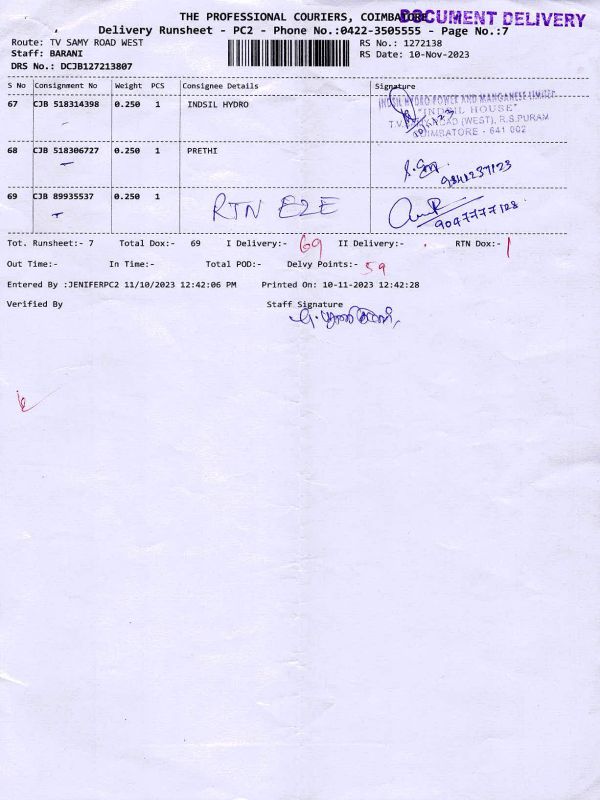 THE PROFESSIONAL COURIERS, COIMBATORE
DOCUMENT DELIVERY
Delivery Runsheet - PC2 - Phone No.:0422-3505555 - Page No.:7
Route: TV SAMY ROAD WEST RS No.: 1272138
Staff: BARANI RS Date: 10-Nov-2023
DRS No.: DCJB127213807
S No Consignment No Weight PCS Consignee Details Signature
67 CJB 518314398 0.250 1 INDSIL HYDRO
INDSIL HYDRO POWER AND MANGANESE LIMITED
"INDSIL HOUSE"
T.V. ROAD (WEST), R.S.PURAM
COIMBATORE - 641 002
68 CJB 518306727 0.250 1 PRETHI
69 CJB 89935537 0.250 1 RTN
Tot. Runsheet:- 7 Total Dox:- 69 I Delivery:- 69 II Delivery:- RTN Dox:- 1
Out Time:- In Time:- Total POD:- Delvy Points:- 59
Entered By :JENIFERPC2 11/10/2023 12:42:06 PM Printed On: 10-11-2023 12:42:28
Verified By Staff Signature